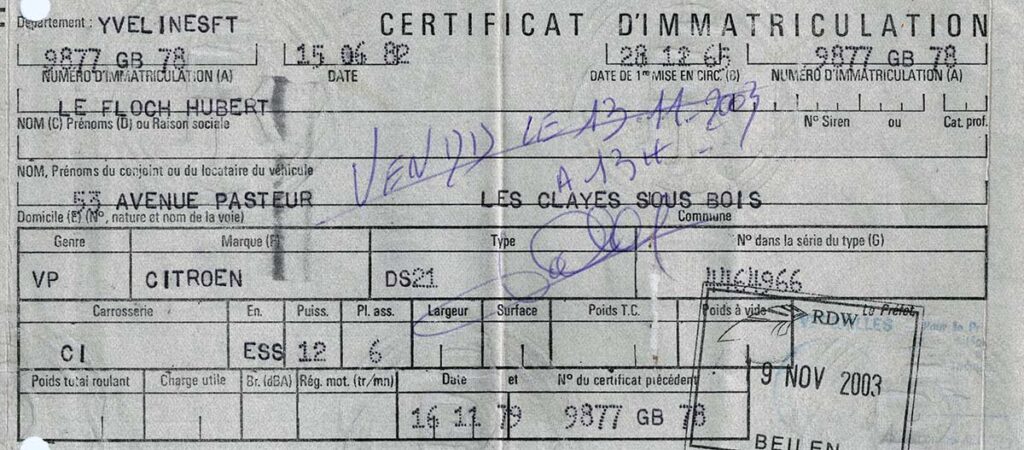 Département : YVELINESFT CERTIFICAT D'IMMATRICULATION
9877 GB 78 15 06 82 28 12 65 9877 GB 78
NUMÉRO D'IMMATRICULATION (A) DATE DATE DE 1re MISE EN CIRC. (B) NUMÉRO D'IMMATRICULATION (A)
LE FLOCH HUBERT
NOM (C) Prénoms (D) ou Raison sociale N° Siren ou Cat. prof.
VENDU LE 13-11-2003
NOM, Prénoms du conjoint ou du locataire du véhicule
A 13H
53 AVENUE PASTEUR LES CLAYES SOUS BOIS
Domicile (E) (N°, nature et nom de la voie) Commune
Genre Marque (F) Type N° dans la série du type (G)
VP CITROEN DS21 4464966
Carrosserie En. Puiss. Pl. ass. Largeur Surface Poids T.C. Poids à vide Le Préfet,
RDW Pour le Pr
CI ESS 12 6
9 NOV 2003
Poids total roulant Charge utile Br. (dBA) Rég. mot. (tr/mn) Date et N° du certificat précédent
16 11 79 9877 GB 78
BEILEN